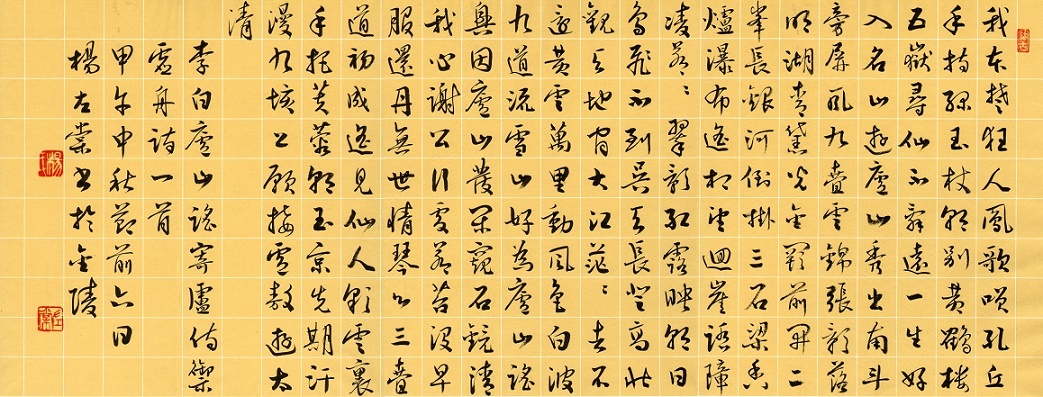 我本楚狂人鳳歌咲孔丘
手持綠玉杖朝別黃鶴樓
五嶽尋仙不辭遠一生好
入名山遊廬山秀出南斗
旁屏風九疊雲錦張影落
明湖青黛光金闕前開二
峯長銀河倒掛三石梁香
爐瀑布遙相望迴崖誻障
凌蒼〻翠影紅霞映朝日
鳥飛不到吳天長登高壯
觀天地間大江茫〻去不
還黃雲萬里動風色白波
九道流雪山好為廬山謠
興因廬山發閑窺石鏡清
我心謝公行處蒼苔沒早
服還丹無世情琴心三疊
道初成遙見仙人彩雲裏
手把芙蓉朝玉京先期汗
漫九垓上願接盧敖遊太
清
李白廬山謠寄盧侍禦
虛舟詩一首
甲午中秋節前六日
楊左棠書於金陵